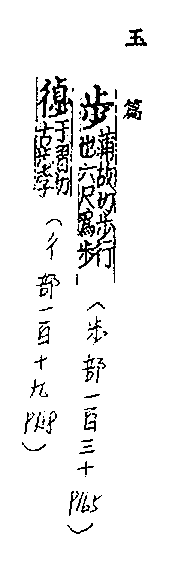 玉篇
步蒲故切步行
也六尺爲步
（步部一百三十 P165）
切
古
（彳部一百十九 P148）